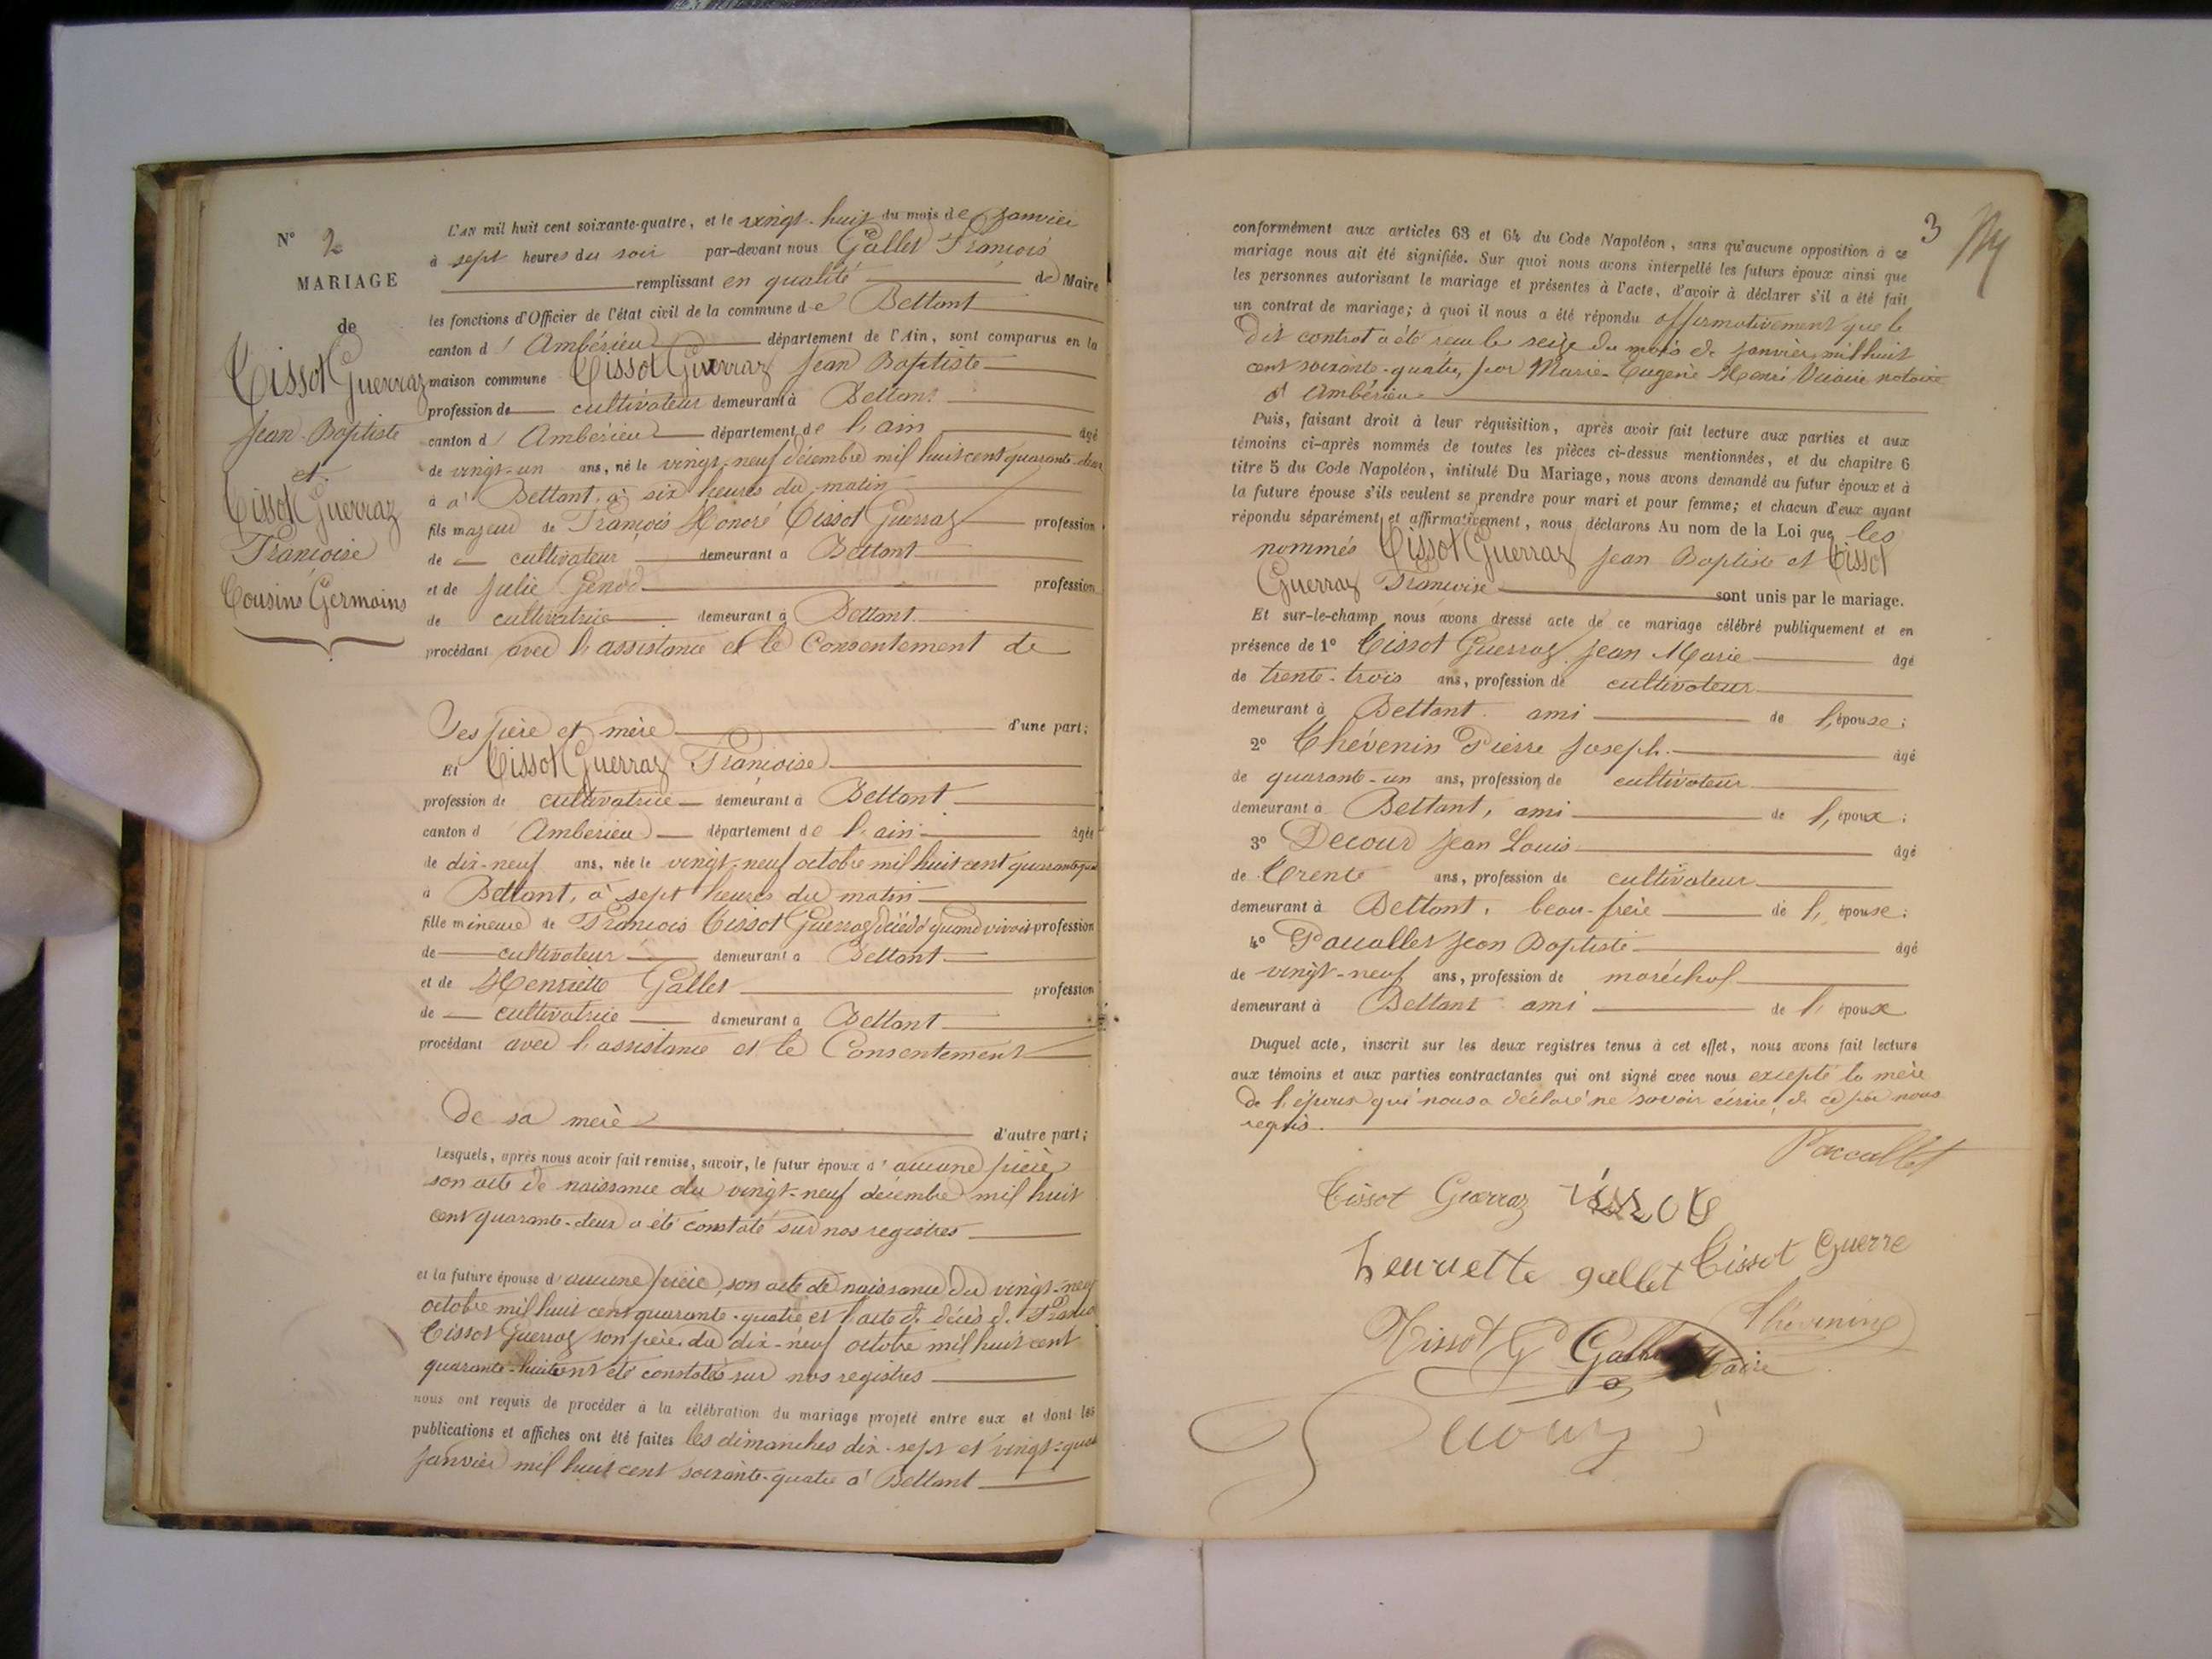 N° 2
MARIAGE
de
Tissot Guerraz
Jean-Baptiste
et
Tissot Guerraz
Françoise
Cousins Germains
L'AN mil huit cent soixante-quatre, et le vingt-huit du mois de Janvier
à sept heures du soir par-devant nous Gallet François
remplissant en qualité de Maire
les fonctions d'Officier de l'état civil de la commune de Bettant
canton d'Ambérieu département de l'Ain, sont comparus en la
maison commune Tissot Guerraz Jean Baptiste
profession de cultivateur demeurant à Bettant
canton d'Ambérieu département de l'ain âgé
de vingt-un ans, né le vingt-neuf décembre mil huit cent quarante-deux
à à Bettant, à six heures du matin
fils majeur de François Honoré Tissot Guerraz profession
de cultivateur demeurant à Bettant
et de Julie Genod profession
de cultivatrice demeurant à Bettant
procédant avec l'assistance et le Consentement de
Ses père et mère d'une part;
Et Tissot Guerraz Françoise
profession de cultivatrice demeurant à Bettant
canton d Ambérieu département de l'ain âgée
de dix-neuf ans, née le vingt-neuf octobre mil huit cent quarante quat
à Bettant, à sept heures du matin
fille mineure de François Tissot Guerraz décédé quand vivait profession
de cultivateur demeurant à Bettant
et de Henriette Gallet profession
de cultivatrice demeurant à Bettant
procédant avec l'assistance et le Consentement
De sa mère d'autre part;
Lesquels, après nous avoir fait remise, savoir, le futur époux d'aucune pièce
son acte de naissance du vingt-neuf décembre mil huit
cent quarante-deux a été constaté sur nos registres
et la future épouse d'aucune pièce, son acte de naissance du vingt-neuf
octobre mil huit cent quarante-quatre et l'acte de décès de
Tissot Guerraz son père du dix-neuf octobre mil huit cent
quarante-huit ont été constatés sur nos registres
nous ont requis de procéder à la célébration du mariage projeté entre eux et dont les
publications et affiches ont été faites les dimanches dix-sept et vingt-quat
Janvier mil huit cent soixante-quatre à Bettant
3
conformément aux articles 63 et 64 du Code Napoléon, sans qu'aucune opposition à ce
mariage nous ait été signifiée. Sur quoi nous avons interpellé les futurs époux ainsi que
les personnes autorisant le mariage et présentes à l'acte, d'avoir à déclarer s'il a été fait
un contrat de mariage; à quoi il nous a été répondu affirmativement que le
Dit contrat a été reçu le seize du mois de Janvier mil huit
cent soixante-quatre, par Marie-Eugène Henri notaire
à Ambérieu
Puis, faisant droit à leur réquisition, après avoir fait lecture aux parties et aux
témoins ci-après nommés de toutes les pièces ci-dessus mentionnées, et du chapitre 6
titre 5 du Code Napoléon, intitulé Du Mariage, nous avons demandé au futur époux et à
la future épouse s'ils veulent se prendre pour mari et pour femme; et chacun d'eux ayant
répondu séparément et affirmativement, nous déclarons Au nom de la Loi que les
nommés Tissot Guerraz Jean Baptiste et Tissot
Guerraz Françoise sont unis par le mariage.
Et sur-le-champ nous avons dressé acte de ce mariage célébré publiquement et en
présence de 1° Tissot Guerraz Jean Marie âgé
de trente-trois ans, profession de cultivateur
demeurant à Bettant ami de l'épouse;
2° Thévenin Pierre Joseph âgé
de quarante-un ans, profession de cultivateur
demeurant à Bettant, ami de l'époux;
3° Decour Jean Louis âgé
de Trente ans, profession de cultivateur
demeurant à Bettant, beau-frère de l'épouse;
4° Paccallet Jean Baptiste âgé
de vingt-neuf ans, profession de maréchal
demeurant à Bettant ami de l'époux
Duquel acte, inscrit sur les deux registres tenus à cet effet, nous avons fait lecture
aux témoins et aux parties contractantes qui ont signé avec nous excepté la mère
De l'époux qui nous a déclaré ne savoir écrire, de ce par nous
requis.
Paccallet
Tissot Guerraz
henriette gallet Tissot Guerre
Tissot G Gallet Maire Thévenin
Decour